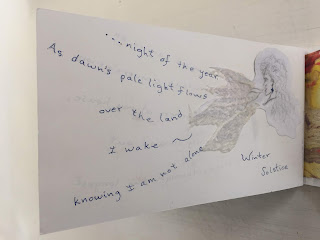 ...night of the year
As dawn's pale light flows
over the land
I wake ~
knowing I am not alone
Winter
Solstice